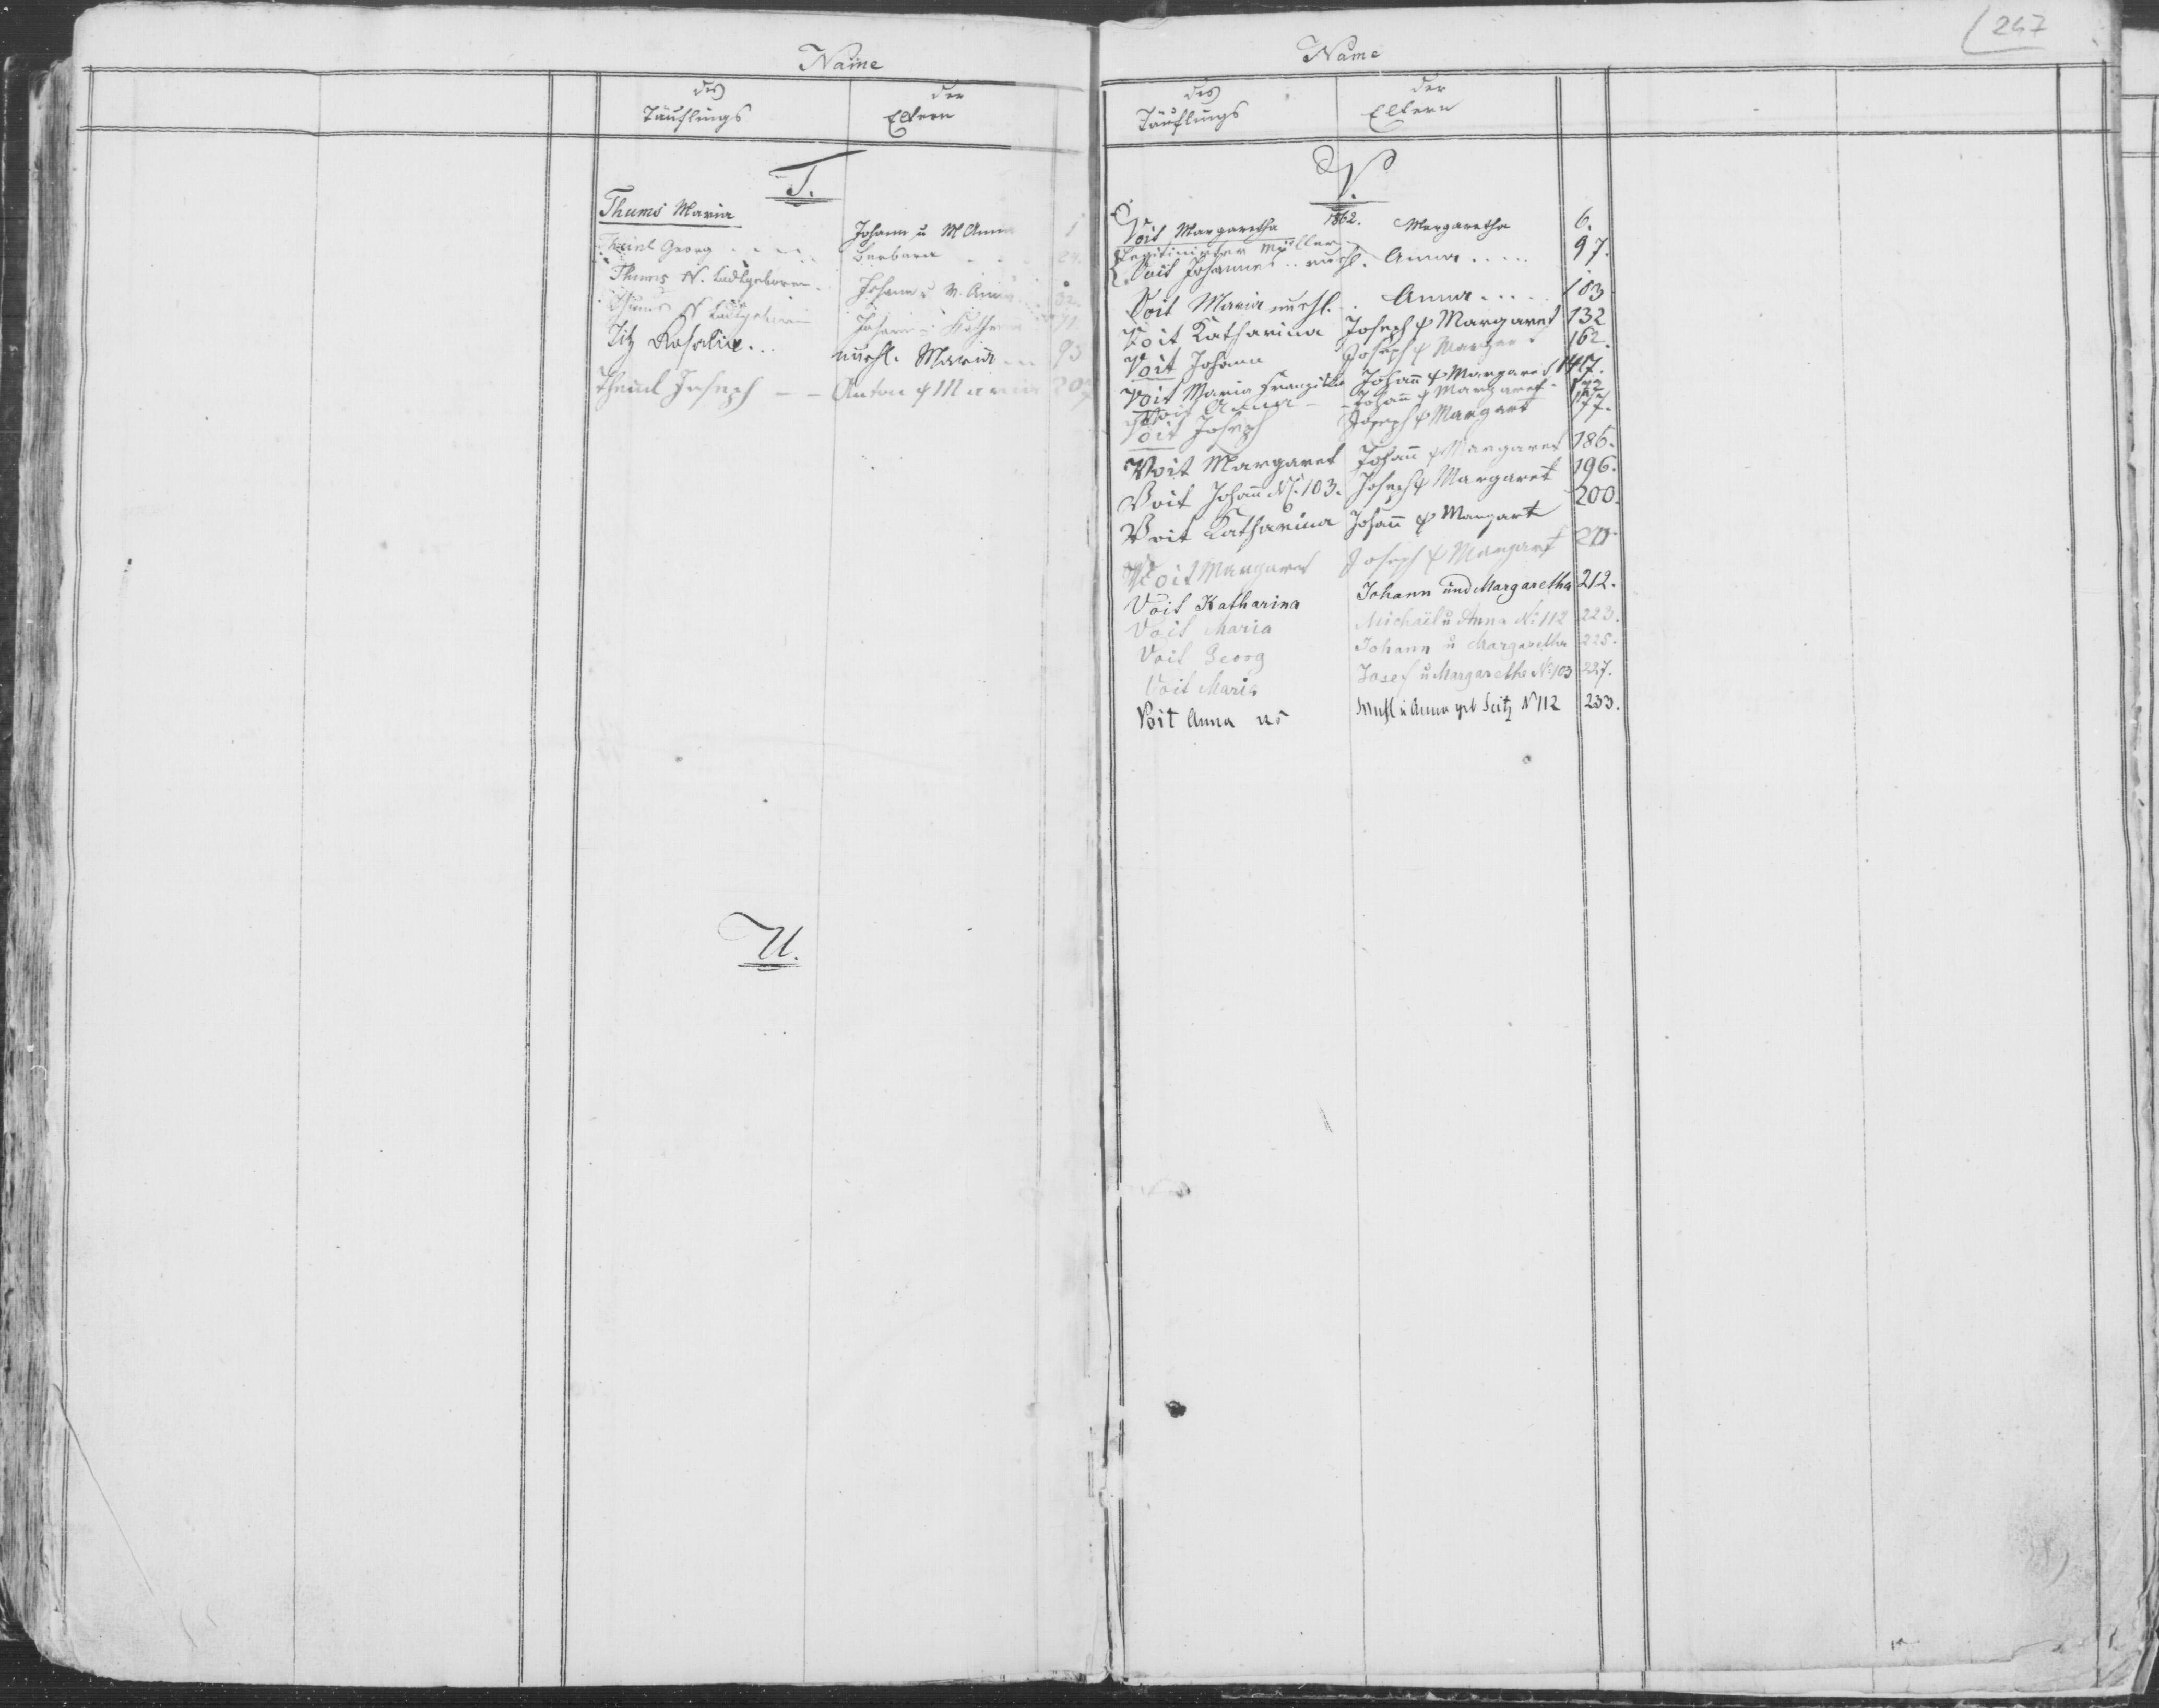 Name
des Täuflings
der Eltern
T.
Thums Maria Johann u M Anna 1
Theinl Georg Barbara 24.
Thums N. todtgeboren Johann u. M. Anna 32.
Thums N todtgeboren Johann u. Kath
Titz Rosalia... unehl. Maria 93
Theinl Joseph - - Anton & Maria 20
U.
247
Name
des Täuflings
der Eltern
V.
Voit Margaretha 1862. Margaretha 6.
Legitimirter Müller
Voit Johannes .. unehl. Anna..... 97.
Voit Maria unehl. Anna.... 103
Voit Katharina Joseph & Margaret 132
Voit Johann Joseph & Margaret 162.
Voit Maria Franziska Johann & Margaret 147.
Voit Anna - - Johann & Margaret 172
Voit Joseph Joseph & Margart 177.
Voit Margaret Johann & Margaret 186.
Voit Johann N. 103. Joseph & Margaret 196.
Voit Katharina Johann & Margart 200.
Voit Margaret Joseph & Margart 211.
Voit Katharina Johann und Margaretha 212.
Voit Maria Michaël u Anna No 112 223.
Voit Georg Johann u Margaretha 225.
Voit Maria Josef u Margaretha No 103 227.
Voit Anna us Michl u Anna geb Seitz N 112 233.